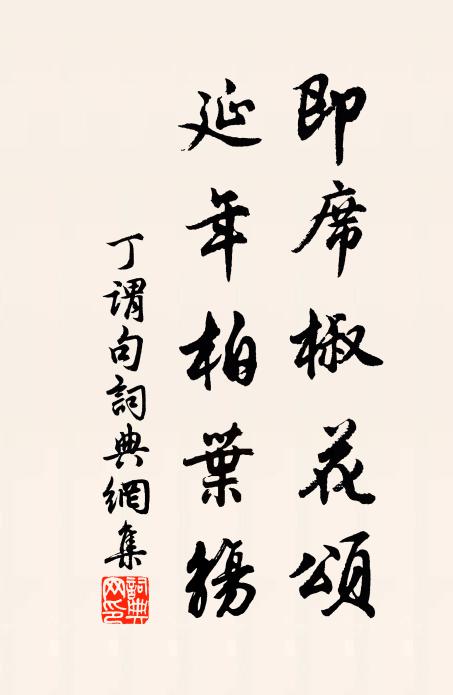 即席椒花頌
延年柏葉觴
丁謂句詞典網集
詞典網印